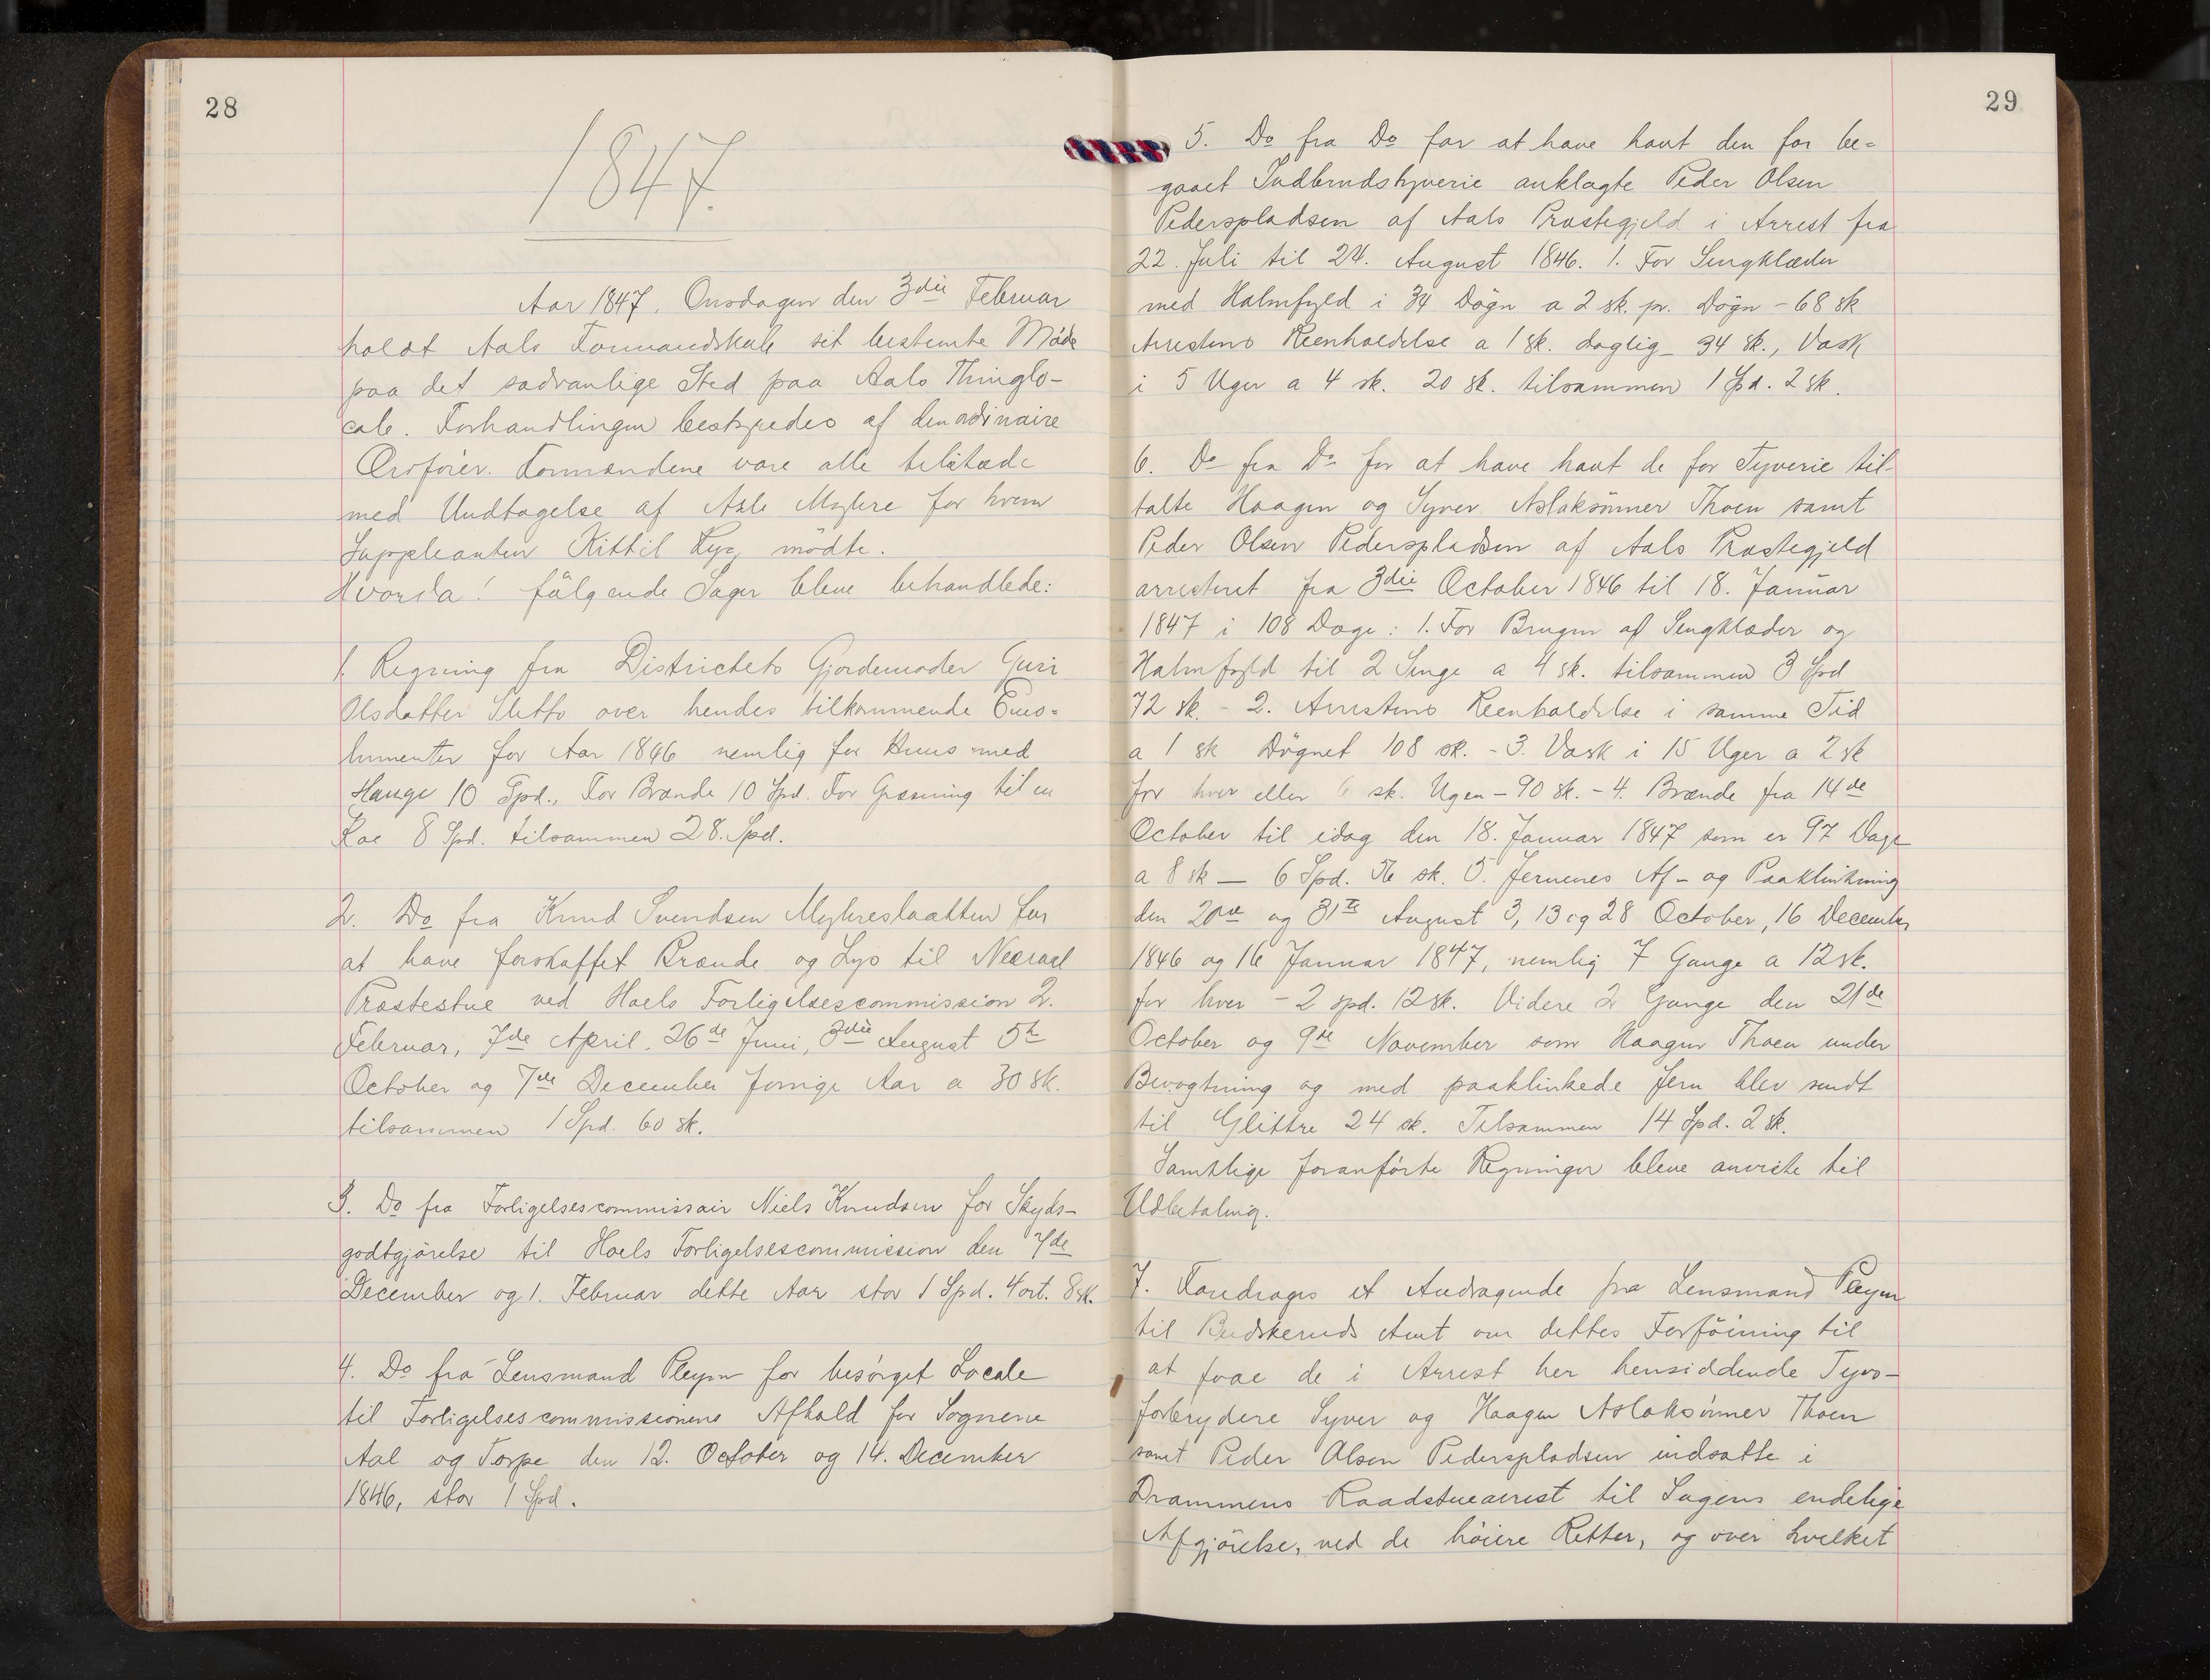 28
1847.
Aar 1847. Onsdagen den 3die Februar
holdt Aals Formandskab sit bestemte Möde
paa det sædvanlige Sted paa Aals Thinglo-
cale. Forhandlingen bestyredes af den ordinaire
Ordförer. Formændene vare alle tilstæde
med Undtagelse af Asle Myhre for hvem
Suppleanten Kittil mödte.
Hvorda! fölgende Sager bleve behandlede:
1. Regning fra Districtets Gjordemoder Guri
Olsdatter Sletto over hendes tilkommende Emo-
lumenter for Aar 1846 nemlig for Huus med
Hauge 10 Spd., For Brænde 10 Spd. For Græsning til en
Koe 8 Spd. tilsammen 28. Spd.
2. Do fra Knud Svendsen Myhreslaatten for
at have forskaffet Brænde og Lys til Nedraal
Præstestue ved Hoels Forligelsescommission 2.
Februar, 7de April, 26de Juni, 3die August 5te
October og 7de December forrige Aar a 30 sk.
tilsammen 1 Spd. 60 sk.
3. Do fra Forligelsescommissair Niels Knudsen for Skyds-
godtgjörelse til Hoels Forligelsescommission den 7de
December og 1. Februar dette Aar stor 1 Spd. 4 ort. 8 sk.
4. Do fra Lensmand Pleym for besörget Locale
til Forligelsescommissionens Afhold for Sognene
Aal og Torpe den 12. October og 14. December
1846, stor 1 Spd.
29
5. Do fra Do for at have havt den for be-
gaaet Indbrudstyverie anklagte Peder Olsen
Pederspladsen af Aals Præstegjeld i Arrest fra
22. Juli til 24. August 1846. 1. For Sengklæder
med Halmfyld i 34 Dögn a 2 sk. pr. Dögn - 68 sk
Arrestens Reenholdelse a 1 sk. daglig - 34 sk., Vask
i 5 Uger a 4 sk. 20 sk. tilsammen 1 Spd. 2 sk.
6. Do fra Do for at have havt de for Tyverie til-
talte Haagen og Syver Aslaksönner Thoen samt
Peder Olsen Pederspladsen af Aals Præstegjeld
arresteret fra 3die October 1846 til 18. Januar
1847 i 108 Dage: 1. For Brugen af Sengklæder og
Halmfyld til 2 Senge a 4 sk. tilsammen 3 Spd
72 sk. - 2. Arrestens Reenholdelse i samme Tid
a 1 sk Dögnet 108 sk. - 3. Vask i 15 Uger a 2 sk
for hver eller 6 sk. Ugen - 90 sk. - 4. Brænde fra 14de
October til idag den 18. Januar 1847 som er 97 Dage
a 8 sk - 6 Spd. 56 sk. 5. Jernenes Af- og Paaklinkning
den 20de og 31te August 3, 13 og 28 October, 16 December
1846 og 16 Januar 1847, nemlig 7 Gange a 12 sk.
for hver - 2 spd. 12 sk. Videre 2 Gange den 21de
October og 9de November som Haagen Thoen under
Bevogtning og med paaklinkede Jern blev sendt
til Glittre 24 sk. Tilsammen 14 Spd. 2 sk.
Samtlige foranförte Regninger bleve anviste til
Udbetaling.
7. Foredroges et Andragende fra Lensmand Pleym
til Budskeruds Amt om dettes Forföining til
at faae de i Arrest her hensiddende Tyvs-
forbrydere Syver og Haagen Aslaksönner Thoen
samt Peder Olsen Pederspladsen indsatte i
Drammens Raadstuearrest til Sagens endelige
Afgjörelse, ved de höiere Retter, og over hvilket